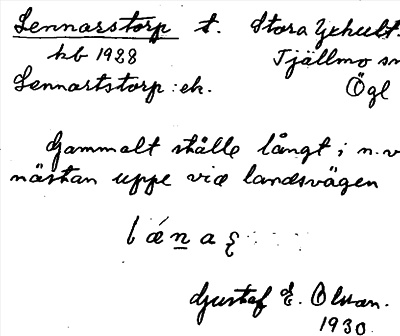 Lennarstorp t. Stora Ychult.
kb 1928 Tjällmo sn
Lennartstorp: ek. Ögl
Gammalt ställe långt i n.v
nästan uppe vid landsvägen
Gustaf E. Olsson.
1930.